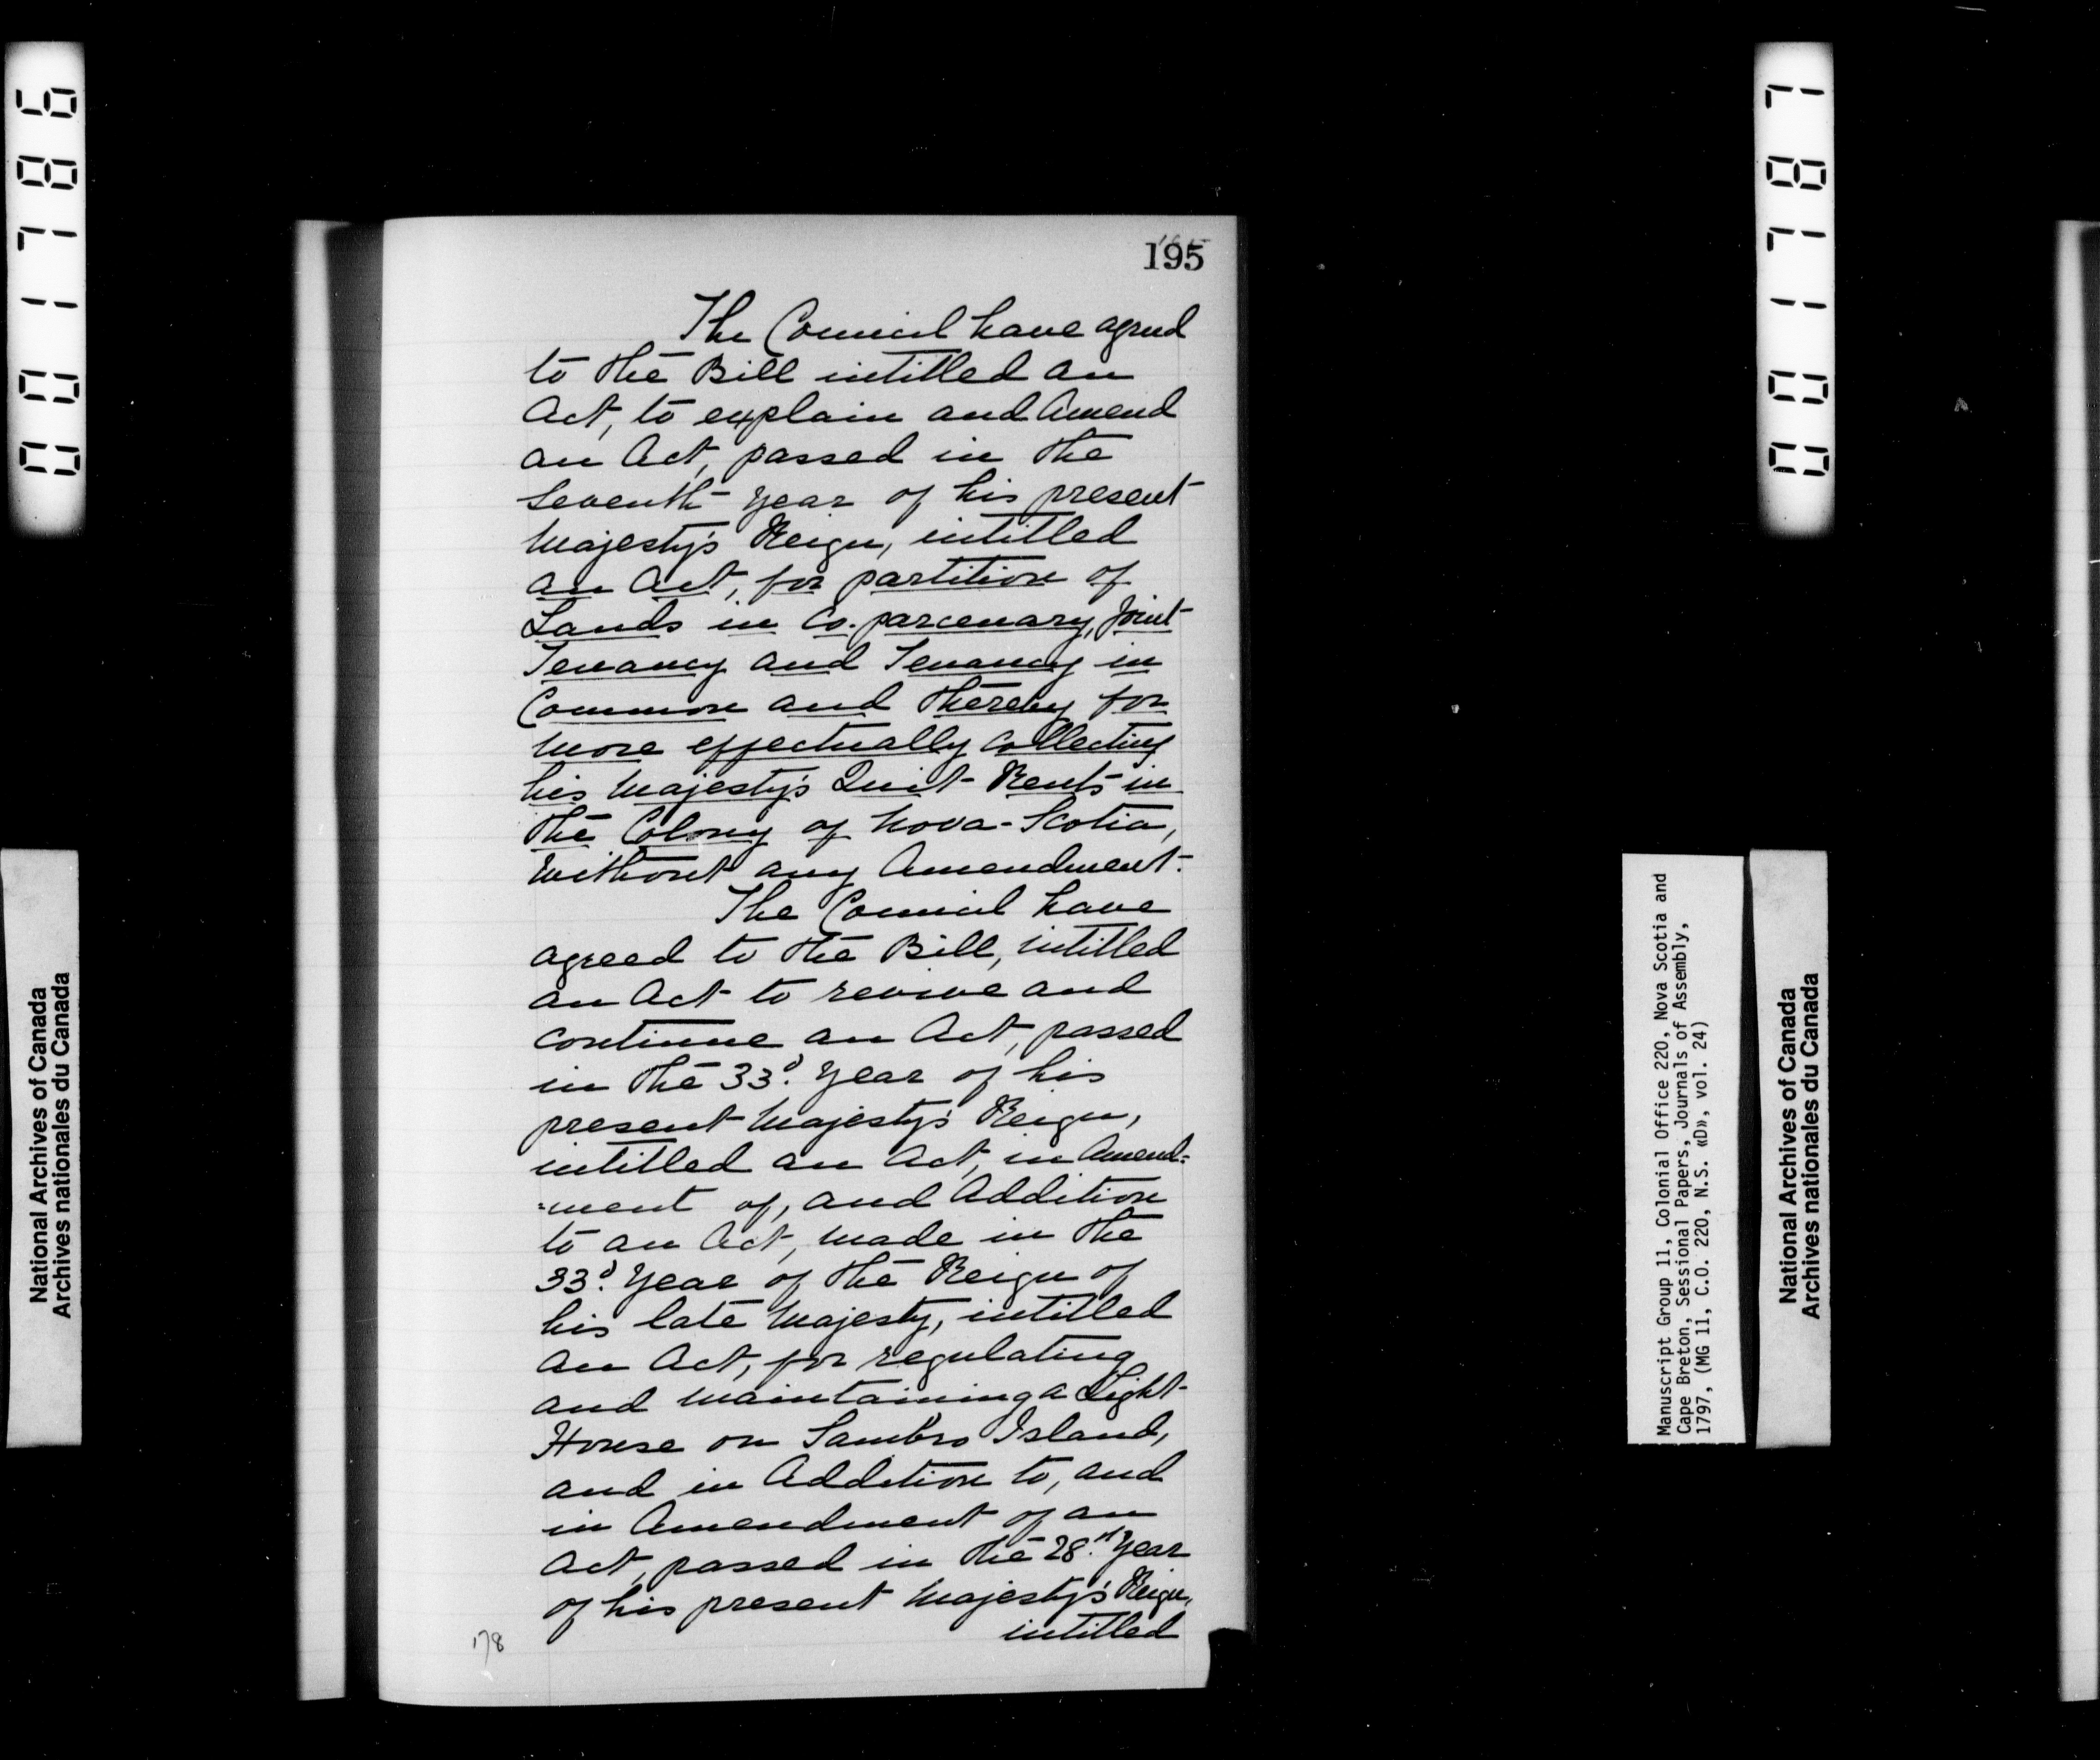 001786
National Archives of Canada
Archives nationales du Canada
195
The Council have agreed
to the Bill intitled an
Act, to explain and Amend
an Act, passed in the
Seventh year of his present
Majesty's Reign, intitled
an Act, for partition of
Lands in Co.parcenary, Joint
Tenancy and Tenancy in
Common and thereby for
more effectually collecting
his Majesty's Quit Rents in
the Colony of Nova-Scotia,
without any Amendment.
The Council have
agreed to the Bill, intitled
an Act to revive and
continue an Act, passed
in the 33d. Year of his
present Majesty's Reign,
intitled an Act, in Amend=
=ment of, and Addition
to an Act, made in the
33d. Year of the Reign of
his late Majesty, intitled
an Act, for regulating
and maintaining a Light
House on Sambro Island,
and in Addition to, and
in Amendment of an
Act, passed in the 28th. Year
of his present Majesty's Reign,
intitled
178
001787
Manuscript Group 11, Colonial Office 220, Nova Scotia and
Cape Breton, Sessional Papers, Journals of Assembly,
1797, (MG 11, C.O. 220, N.S. «D», vol. 24)
National Archives of Canada
Archives nationales du Canada